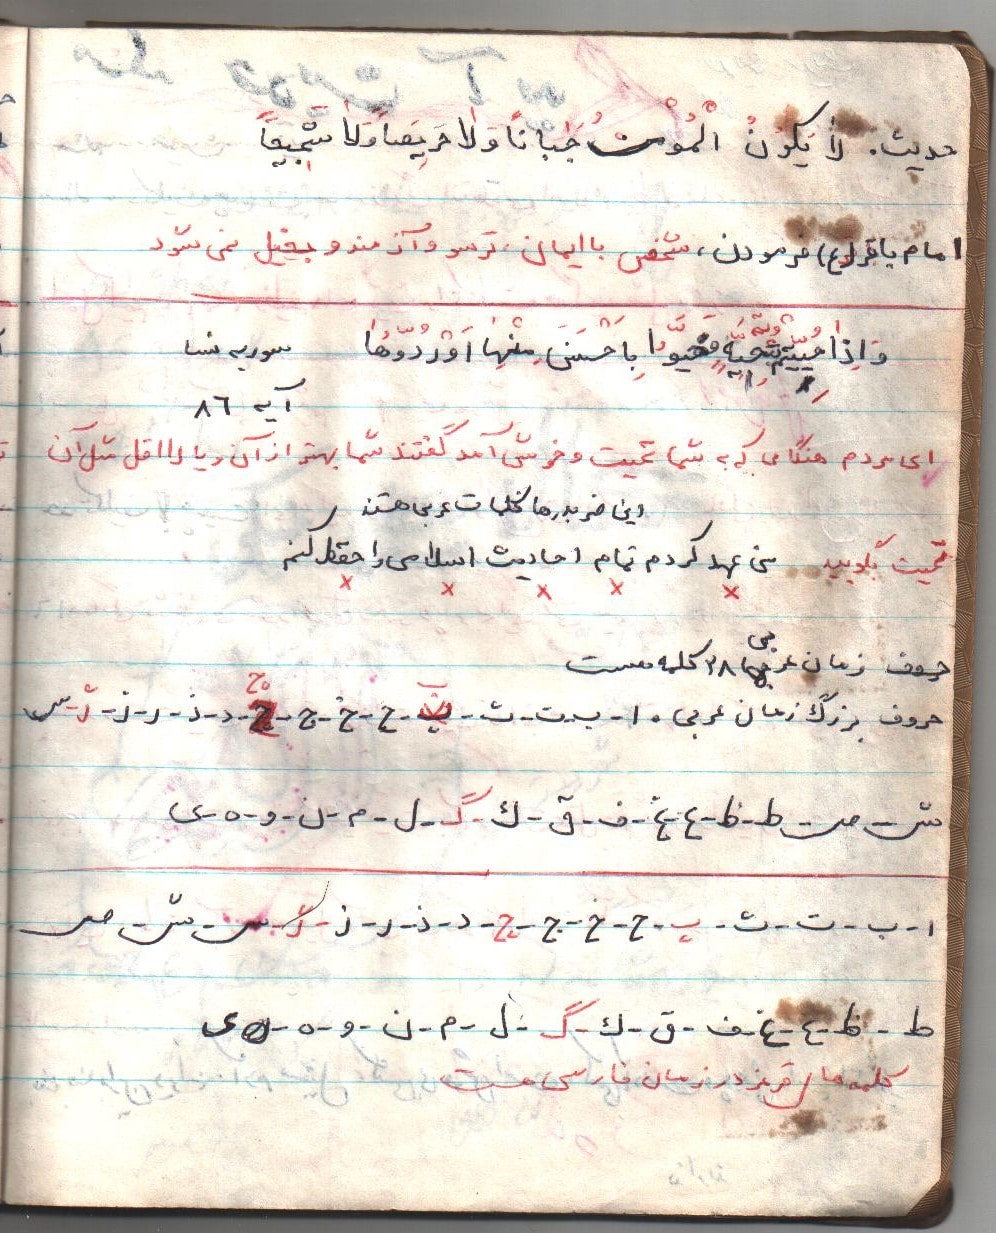 حدیث. لاٰ یَکُونُ الْمُوْمِنْ جَبٰاناً وَلاٰ حَریصاً وَلاٰ شَحیحاً
امام باقر(ع) فرمودن، شخص با ایمان، ترسو و آزمند و بخیل نمی شود
وَاِذٰا حُیّیتُم بِتَحیَّةٍ فَحَیُّوا بِاَحْسَنَ مِنْهٰا اَوْ رُدّوُهٰا سوریه نسا
آیه ٨٦
ای مردم هنگامی که به شما تحیت و خوشی آمد گفتند شما بهتر از آن و یا لااقل مثل آن
این ضربدرها کلمات عربی هستند
تحیت بگویید من عهد کردم تمام احادیث اسلامی را حفظ کنم
x x x x x
حروف زمان عربی ٢٨ کلمه هست
حروف بزرگ زمان عربی. ا - ب - ت - ث - پ - ح - خ - ج - چ - د - ذ - ر - ز - ژ - س
ش - ص - ط - ظ - ع - غ - ف - ق - ك - گ - ل - م - ن - و - ه - ی
ا - ب - ت - ث - پ - ح - خ - ج - چ - د - ذ - ر - ز - ژ - س - ش - ص
ط - ظ - ع - غ - ف - ق - ك - گ - ل - م - ن - و - ه - ی
کلمه های قرمز در زمان فارسی هست